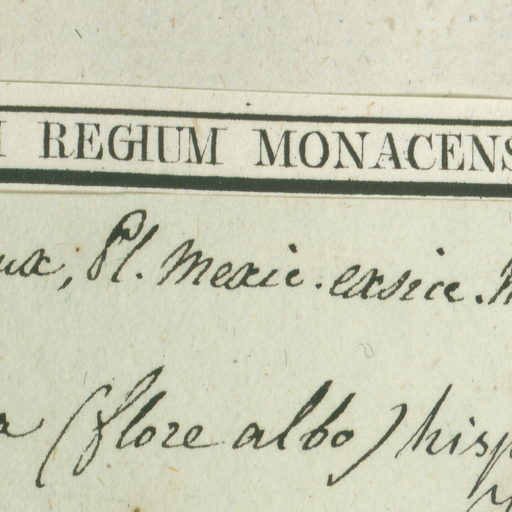 REGIUM MONACENS
ux, Pl. Mexic. exsicc.
(flore albo) hisp